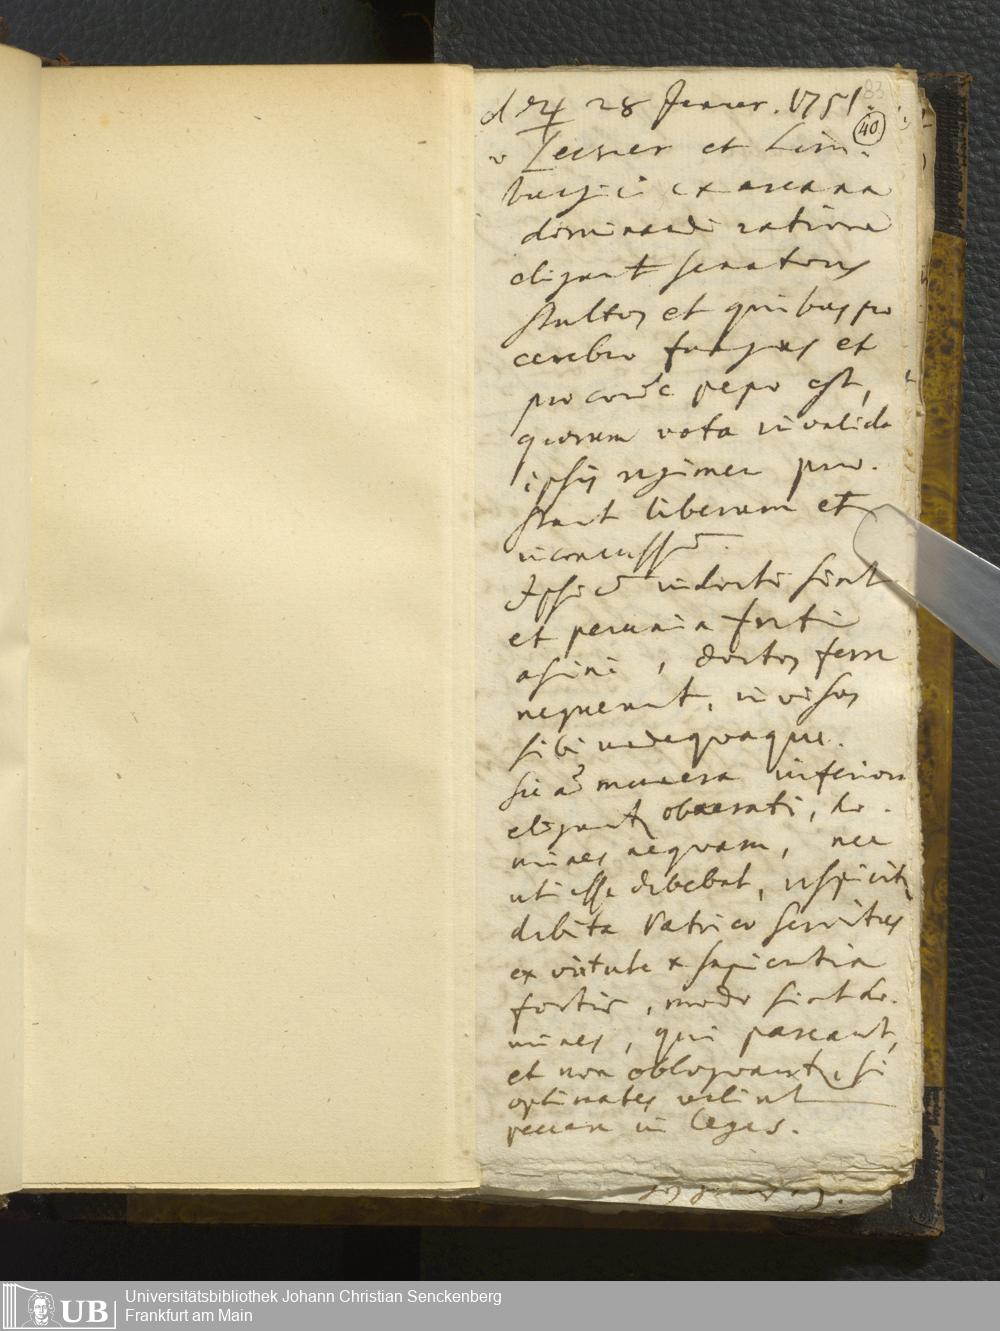 83
d. 24 28 Januar. 1751.
40
v Lersner et Lim-
burgii ex arcana
dominandi ratione
eligunt senatores
stultos et quibus pro
cerebro fungus et
pro corde pepo est,
quorum vota invalida
ipsis regimen prae-
stant liberum et
inconcussum.
Ipsi cum indocti sint
et pecunia forti
asini, doctos ferre
nequeunt, invisos
sibi undequaque.
Sic ad munera inferiora
eligunt obaerati, ho-
mines nequam, nec
uti esse debebat, respicitur
debita Patricio servitus
ex virtute & sapientia
fortis, modo sint ho-
mines, qui pareant,
et non obloquantur, si
optimates velint
peccare in leges.
UB
Universitätsbibliothek Johann Christian Senckenberg
Frankfurt am Main